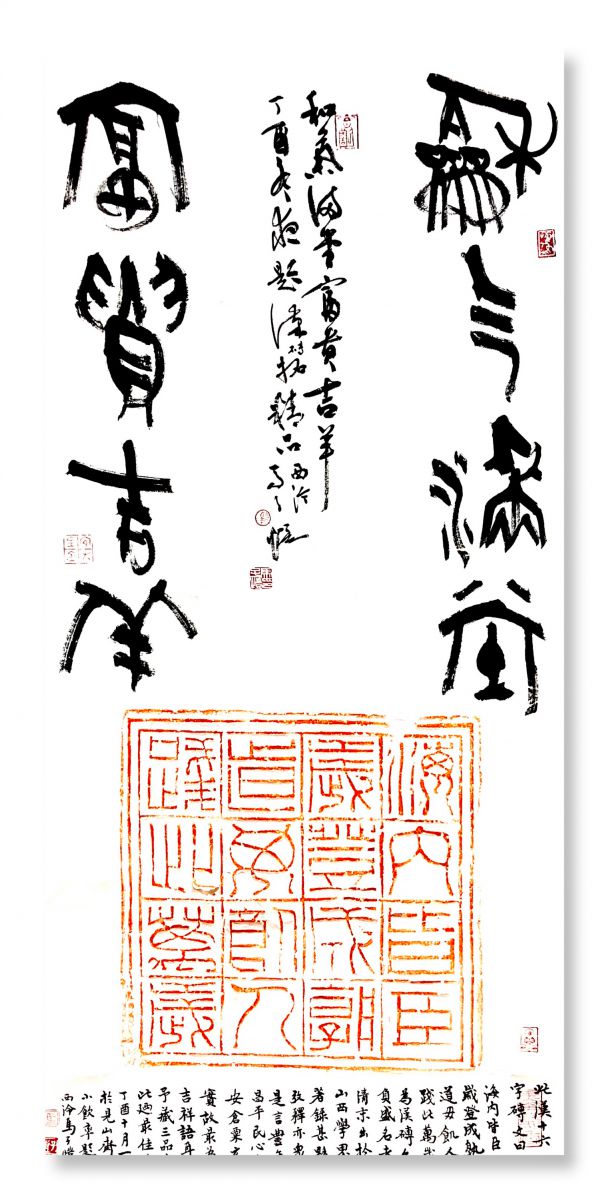 龢气滿堂
和氣滿堂富貴吉羊
丁酉冬夜題漢磚拓精品西泠
富貴吉羊
海内皆臣
歲登成孰
道毋飢人
踐此萬歲
此漢十六
字磚文曰
海内皆臣
歲登成孰
道毋飢人
踐此萬歲
為漢磚
負盛名者
清末出於
山西學界
著錄甚
致釋亦
是言豐年
昌平民心
安倉粟
實故最為
吉祥語耳
予藏三品
此迺最佳
丁酉十月一
於見山齋
小飲率題
西泠馬